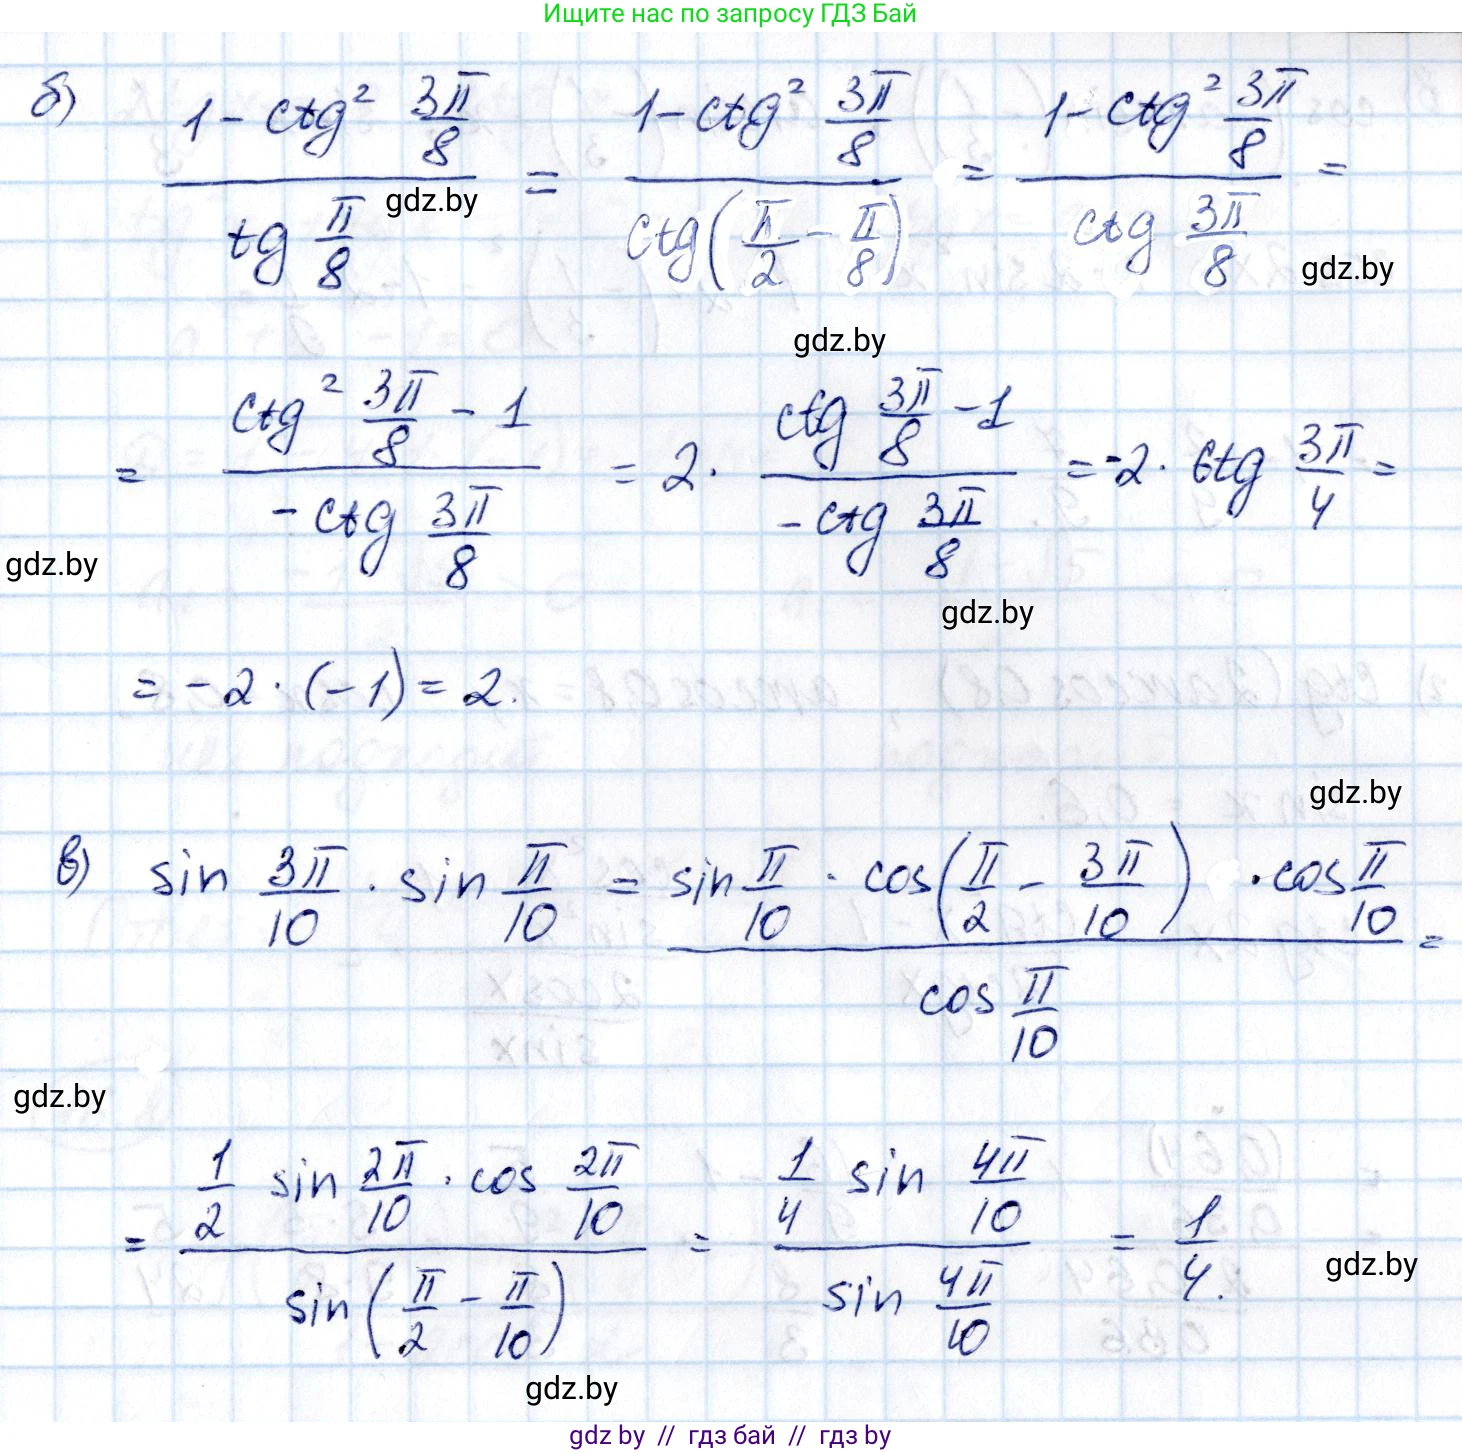 Ищите нас по запросу ГДЗ Бай
б) (1 - ctg² 3π/8) / (tg π/8) = (1 - ctg² 3π/8) / (ctg(π/2 - π/8)) = (1 - ctg² 3π/8) / (ctg 3π/8) =
gdz.by
gdz.by
gdz.by
= (ctg² 3π/8 - 1) / (- ctg 3π/8) = 2 · (ctg 3π/8 - 1) / (- ctg 3π/8) = -2 · ctg 3π/4 =
gdz.by
gdz.by
= -2 · (-1) = 2.
gdz.by
в) sin 3π/10 · sin π/10 = (sin π/10 · cos(π/2 - 3π/10) · cos π/10) / (cos π/10) =
gdz.by
= (1/2 sin 2π/10 · cos 2π/10) / (sin(π/2 - π/10)) = (1/4 sin 4π/10) / (sin 4π/10) = 1/4.
gdz.by
gdz.by
gdz by // гдз бай // гдз by